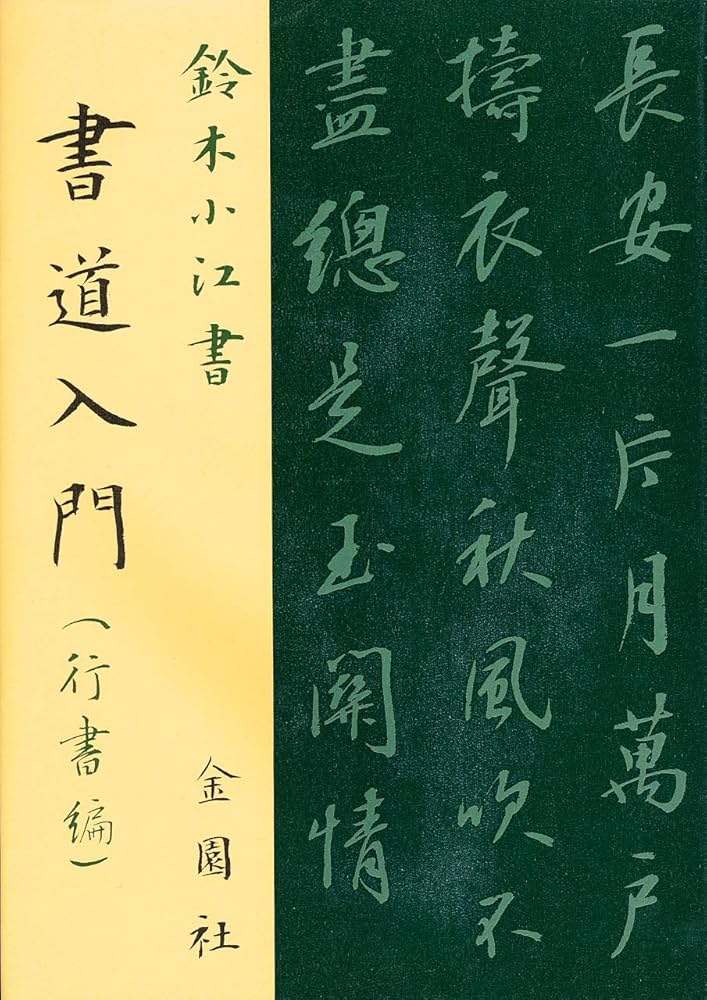 長安一片月萬戸
擣衣聲秋風吹不
盡總是玉關情
鈴木小江書
書道入門(行書編)
金園社